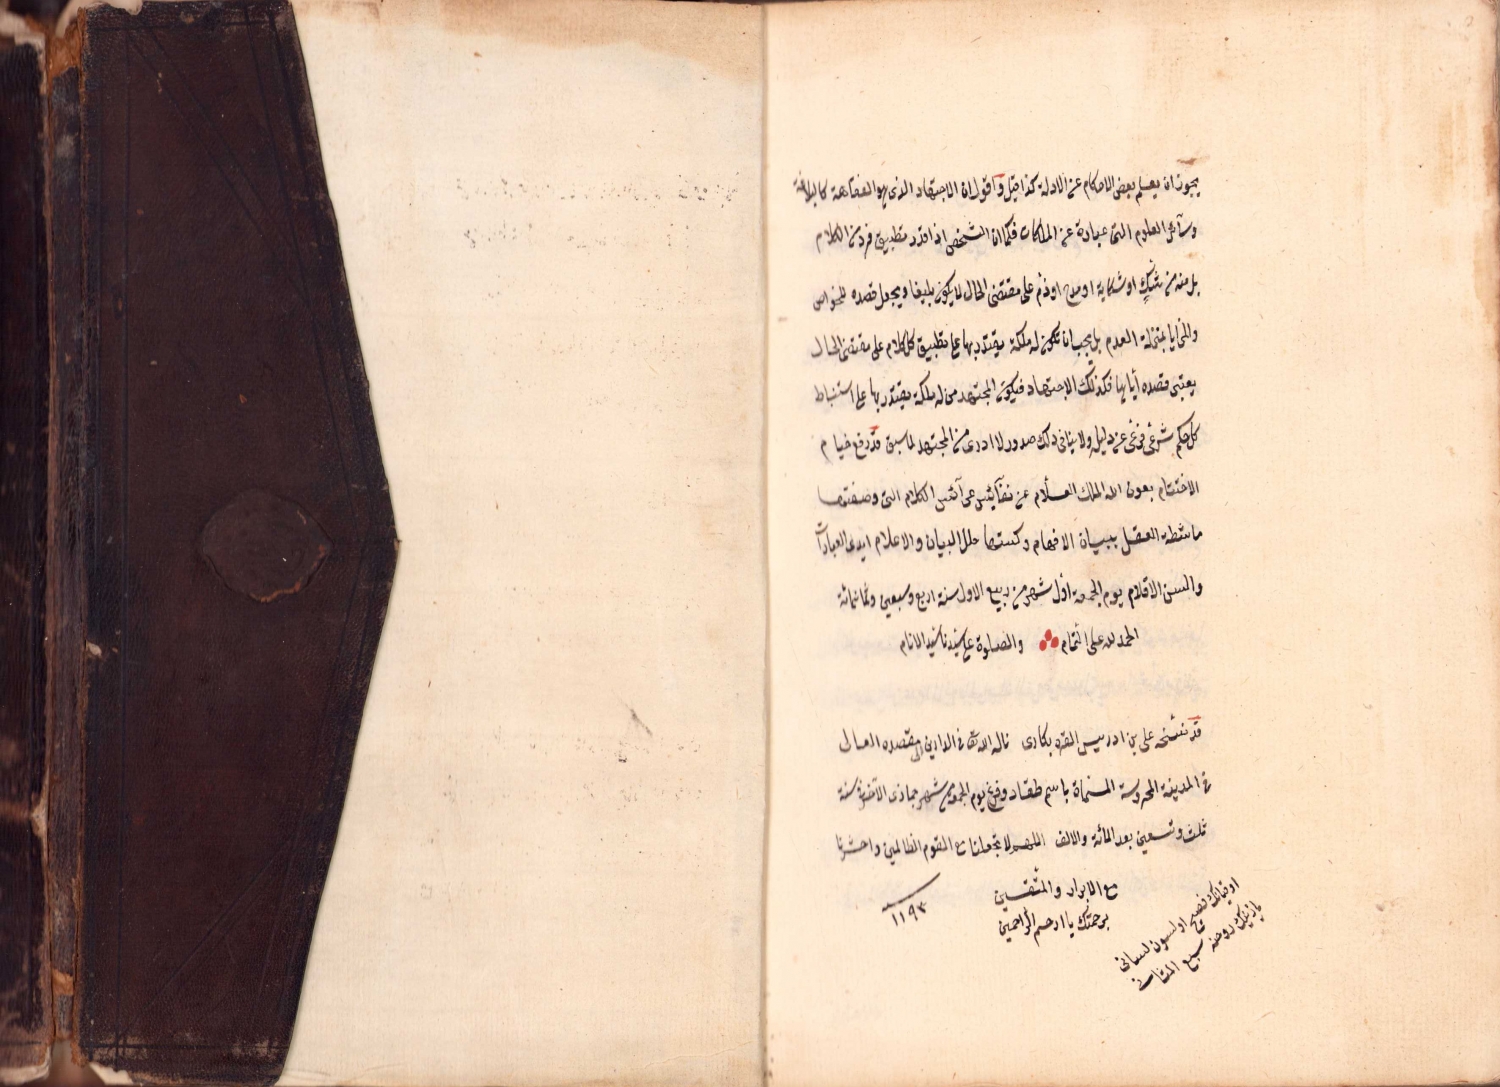 يجوز ان يعلم بعض الاحكام عن الادلة كذا قيل واقول ان الاجتهاد الذى هو الفقاهة كالبلاغة
وسائر العلوم التى عبارة عن الملكات فكما ان الشخص اذا قدر بتطبيق فرد من الكلام
بل منه من شكر او شكاية او مدح او ذم على مقتضى الحال لا يكون بليغا ويجعل قصده للخواص
والمزايا بمنزلة العدم بل يجب ان تكون له ملكة يقتدر بها على تطبيق كل كلام على مقتضى الحال
يعتبر قصده اياها فكذلك الاجتهاد فيكون المجتهد من له ملكة يقتدر بها على استنباط
كل حكم شرعى فرعى عن دليله ولا ينافى ذلك صدور لا ادرى من المجتهد لما سبق قد رفع خيام
الاختتام بعون الله الملك العلام عن نفائس عرائس الكلام التى وصفتها
ماشطة العقل ببيان الافهام وكستها حلل البيان والاعلام ايدى العبارات
والسن الاقلام يوم الجمعة اول شهر من ربيع الاول سنة اربع وسبعين وثمانمائة
الحمد لله على التمام والصلوة على سيدنا سيد الانام
قد نسخه على بن ادريس ناله الله تعالى فى الدارين الى مقصده العال
فى المدينة المحروسة المسماة باسم طقاد وفرغ يوم الجمعة من شهر جماذى الآخرة سنة
ثلث وتسعين بعد المائة والالف اللهم لا تجعلنا مع القوم الظالمين واحشرنا
مع الابرار والمتقين
برحمتك يا ارحم الراحمين
١١٩٣
اوقيانك فصيح اولسون لسانى
يازنيك روحنه سبع المثانى